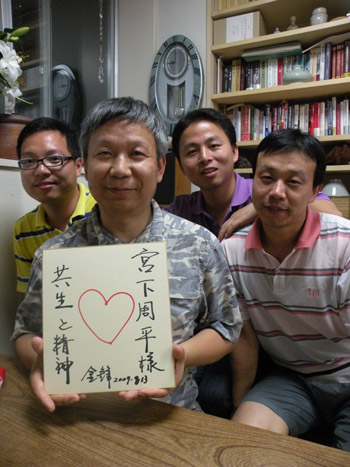 宮下周平様
共生と精神
金鋒 2009.8.13